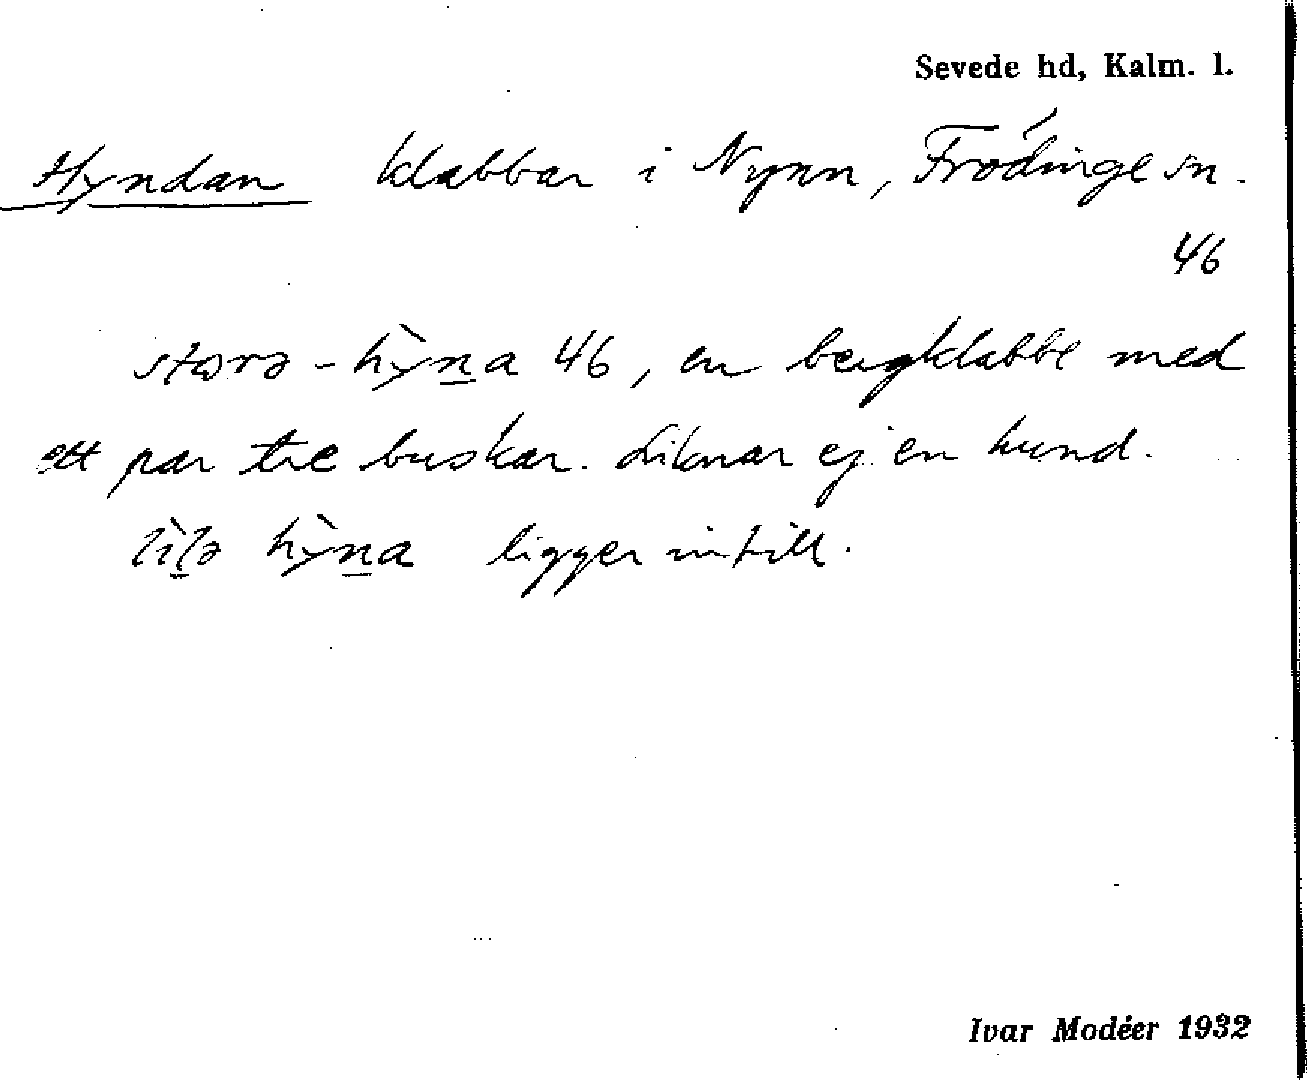 Sevede hd, Kalm. l.
Hyndan klabbar i Nynn, Frödinge sn.
46
storə - hỳn̲a 46, en bergklabbe med
ett par tre buskar. Liknar ej en hund.
lìl̲ə hỳn̲a ligger intill.
Ivar Modéer 1932